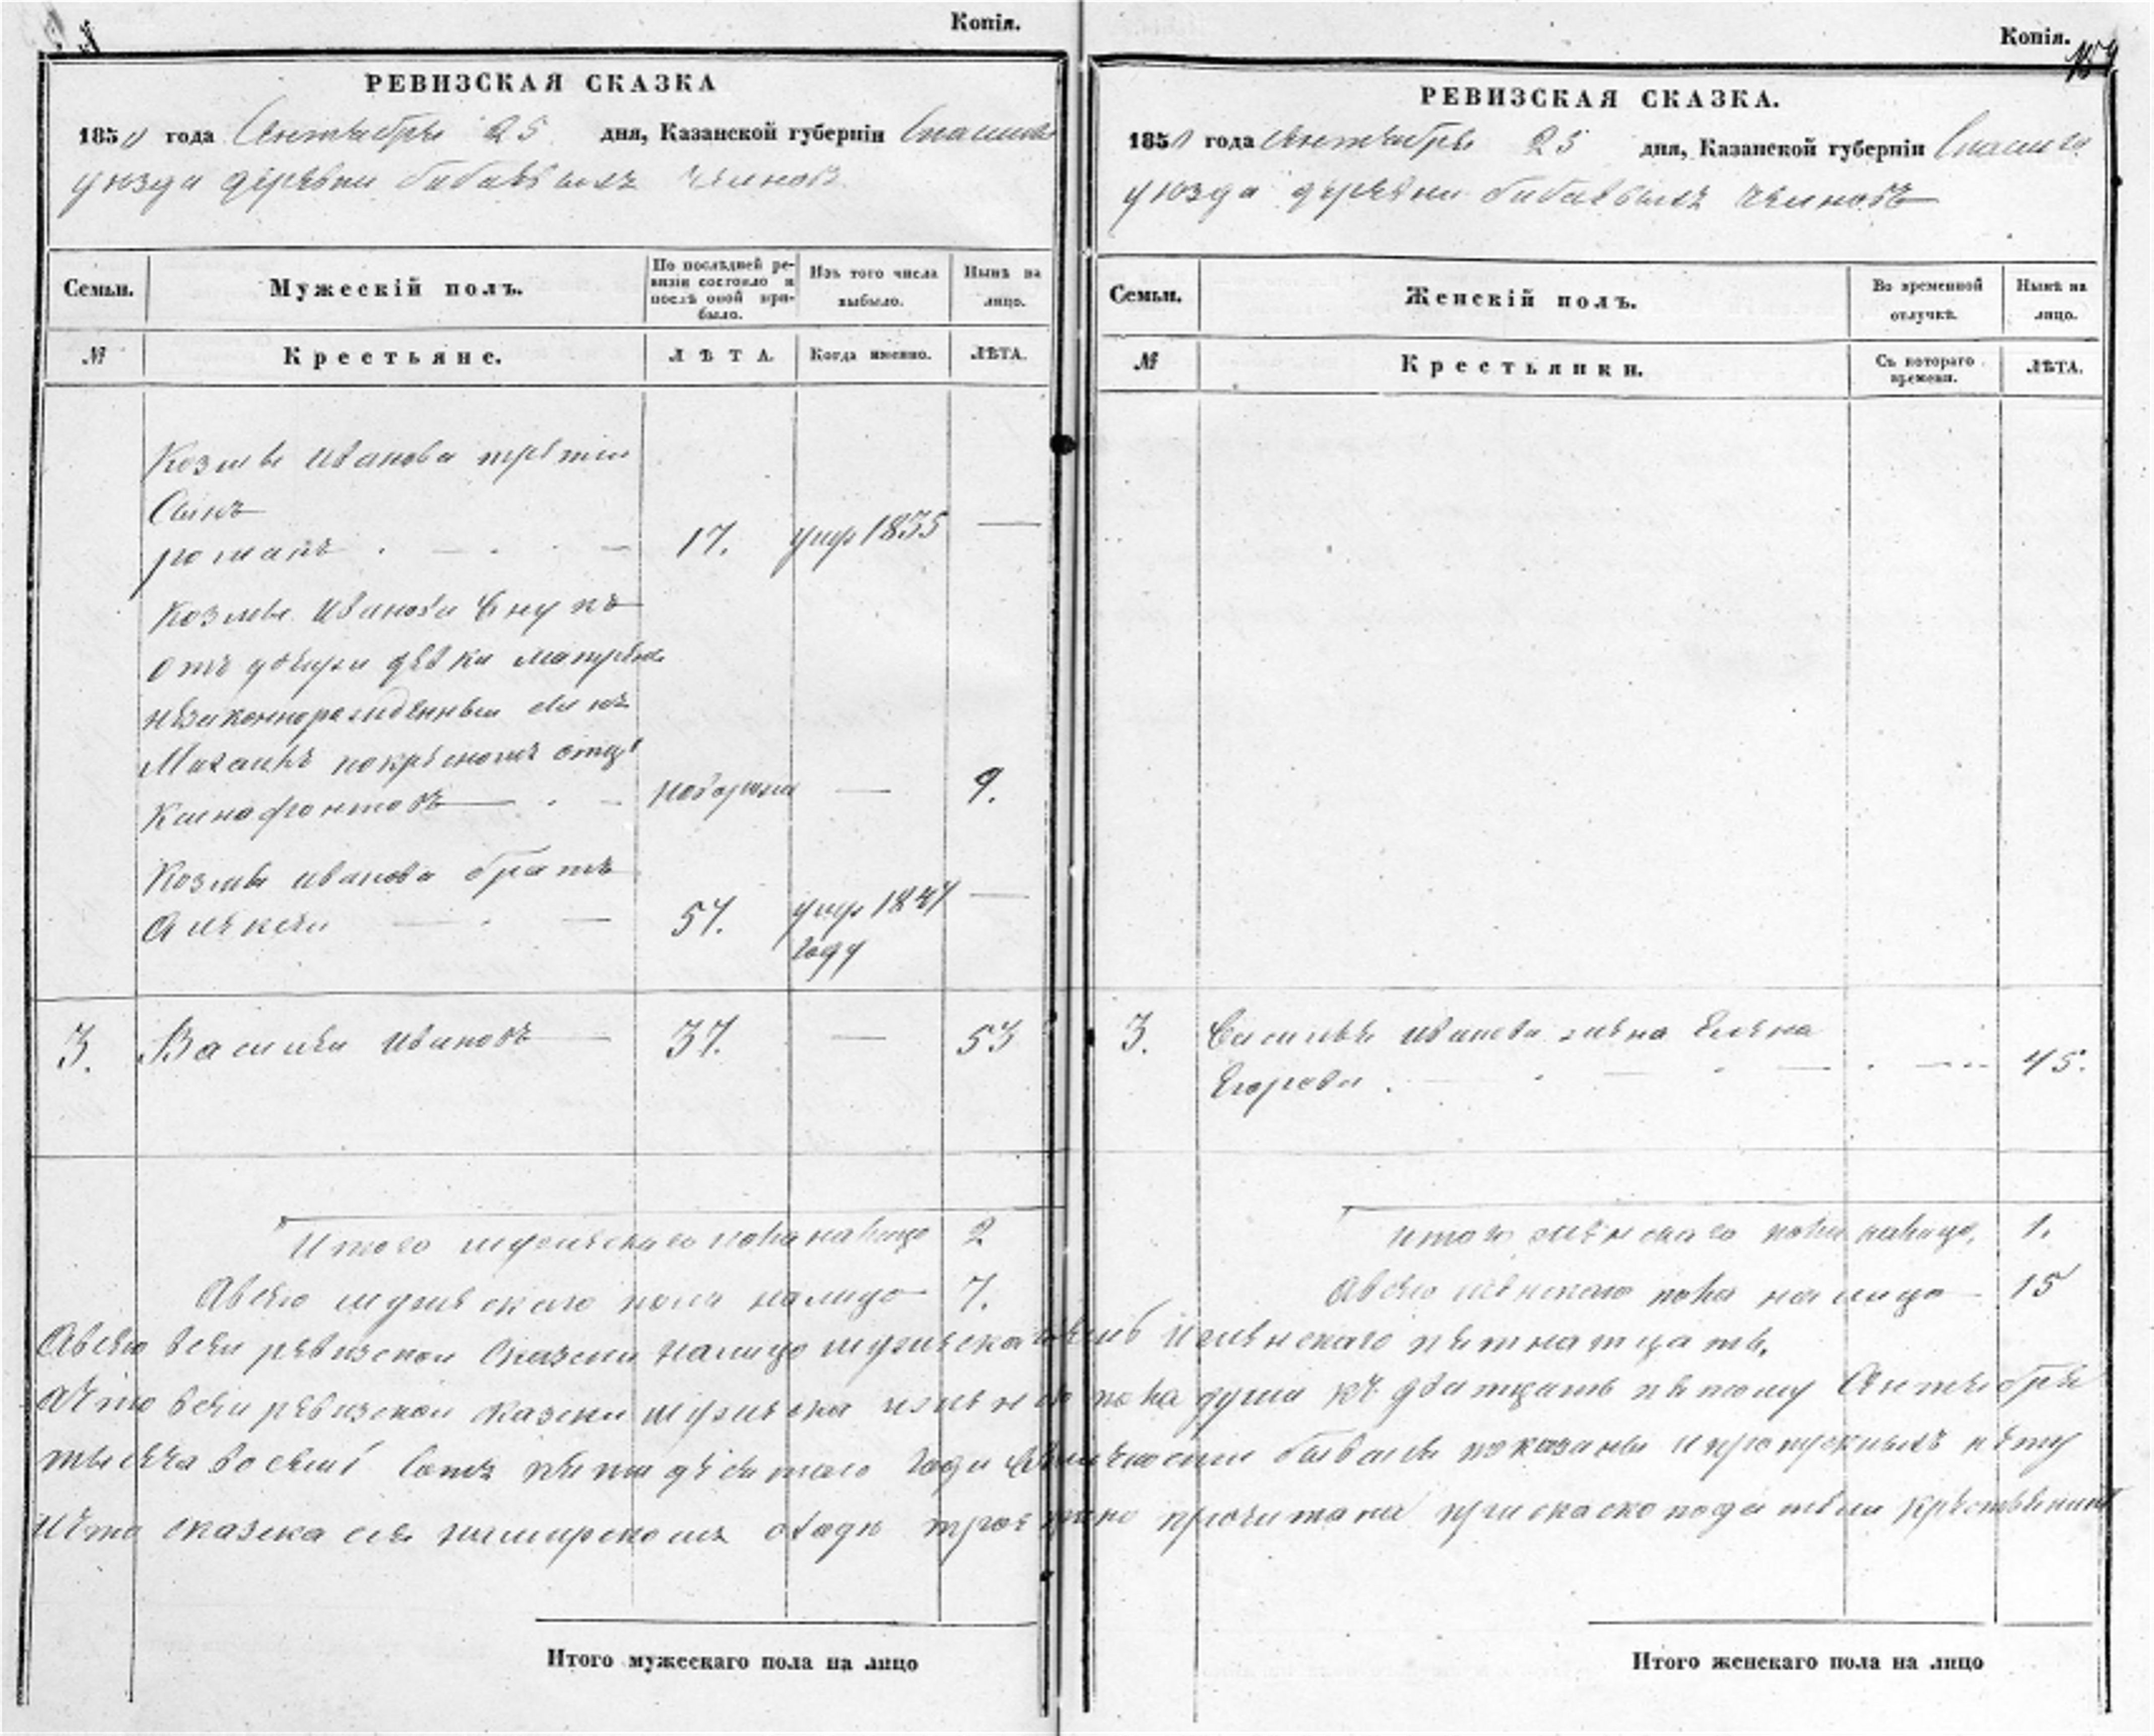 Копія.
РЕВИЗСКАЯ СКАЗКА
1850 года Сентября 25 дня, Казанской губерніи Спаскаго
уѣзда деревни бибаевыхъ челновъ
Семьи.
Мужескій полъ.
По послѣдней ре-
визіи состояло и
послѣ оной при-
было.
Изъ того числа
выбыло.
Нынѣ на
лицо.
№
Крестьяне.
ЛѢТА.
Когда именно.
ЛѢТА.
Козмы Иванова третій
Сынъ
романъ 17. умр 1835 —
Козмы Иванова внукъ
отъ дочери дѣвки матрены
незаконнорожденный сынъ
Михаилъ по крестномъ отцѣ
Ксенофонтовъ новорожд — 9.
Козмы иванова братъ
Алексѣй 57. умр 1841 —
году
3. Василій Ивановъ 37. — 53
Итого мужескаго пола налицо 2
А всего мужескаго пола налицо 7.
Копія.
РЕВИЗСКАЯ СКАЗКА.
1850 года Сентября 25 дня, Казанской губерніи Спаскаго
уѣзда деревни бибаевыхъ челновъ
Семьи.
Женскій полъ.
Во временной
отлучкѣ.
Нынѣ на
лицо.
№
Крестьянки.
Съ котораго
времени.
ЛѢТА.
3. Василья иванова жена Елена
Егорова 45.
Итого женскаго пола налицо, 1.
А всего женскаго пола на лицо 15
А всего в сей ревизской сказки налицо мужеска семь и женскаго пятнатцать,
А что в сей ревизской сказки мужеска и женска пола души къ дватцать пятому Сентября
тысяча восемь сотъ пятидесятаго года бывалы показаны и пропускныхъ нѣту
и что сказка сія на мирскомъ сходѣ прочитана при сказкоподатели крестьянинѣ
Итого мужескаго пола на лицо
Итого женскаго пола на лицо